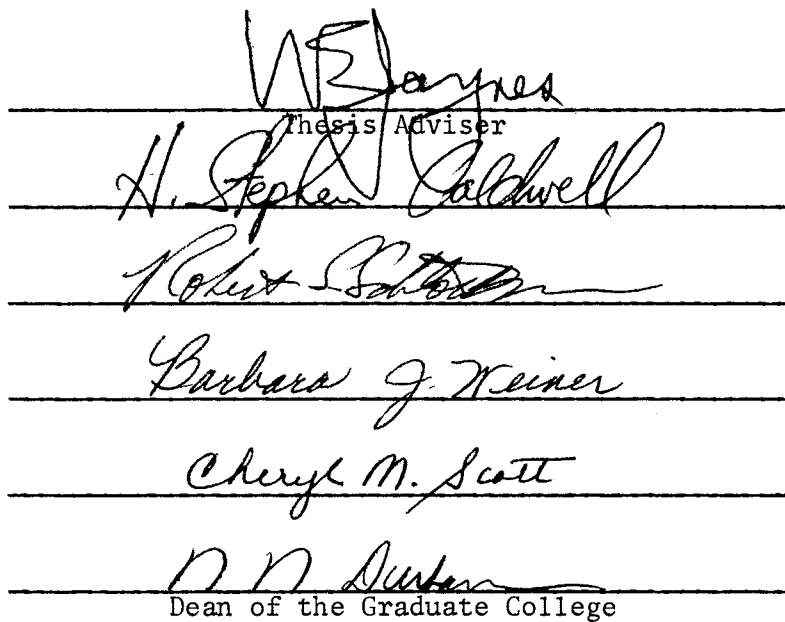 WE Jaynes
Thesis Adviser
H. Stephen Caldwell
Robert
Barbara J. Weiner
Cheryl M. Scott
N N Durham
Dean of the Graduate College